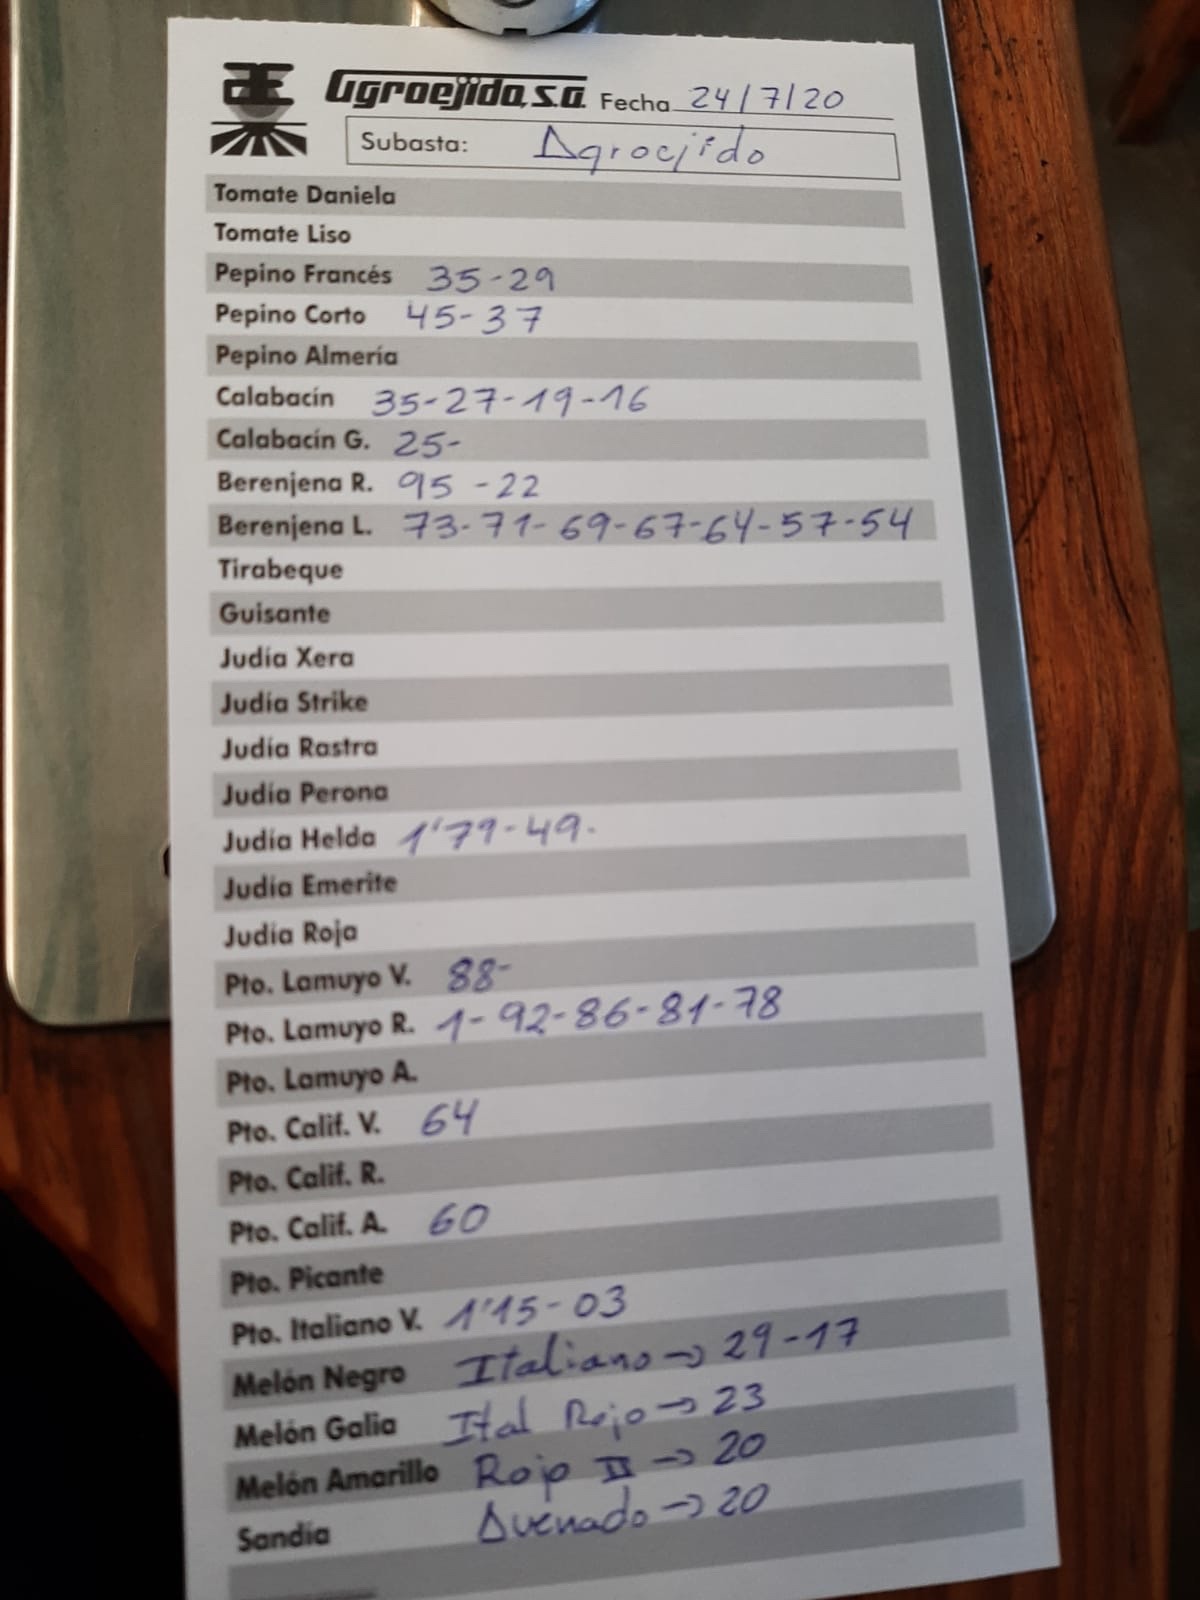 Agroejido, S.A. Fecha 24/7/20
Subasta: Agroejido
Tomate Daniela
Tomate Liso
Pepino Francés 35-29
Pepino Corto 45-37
Pepino Almería
Calabacín 35-27-19-16
Calabacín G. 25-
Berenjena R. 95-22
Berenjena L. 73-71-69-67-64-57-54
Tirabeque
Guisante
Judía Xera
Judía Strike
Judía Rastra
Judía Perona
Judía Helda 1'79-49.
Judía Emerite
Judía Roja
Pto. Lamuyo V. 88-
Pto. Lamuyo R. 1-92-86-81-78
Pto. Lamuyo A.
Pto. Calif. V. 64
Pto. Calif. R.
Pto. Calif. A. 60
Pto. Picante
Pto. Italiano V. 1'15-03
Melón Negro Italiano→29-17
Melón Galia Ital Rojo→23
Melón Amarillo Rojo II→20
Sandía Avenado→20